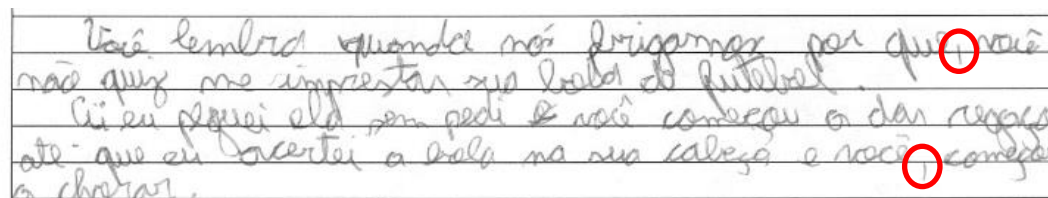 Você lembra quando nós brigamos por quê, você
não quiz me imprestar sua bola de futebol.
Ai eu peguei ela sem pedi e você começou a dar regaço
até que eu acertei a bola na sua cabeça e você, começo
a chorar.